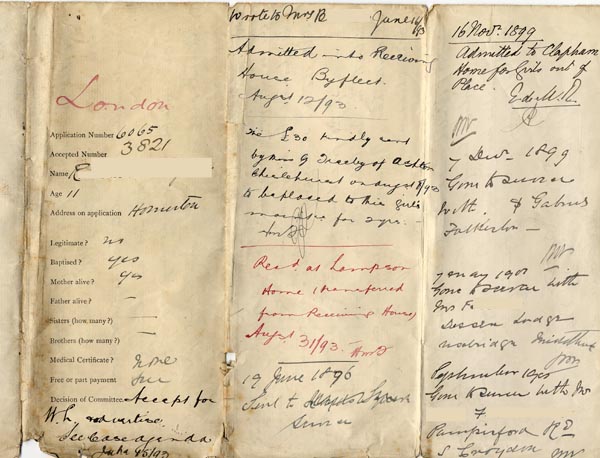 London
Application Number 6065
Accepted Number 3821
Name R
Age 11
Address on application Homerton
Legitimate? no
Baptised? yes
Mother alive? yes
Father alive? –
Sisters (how many?) —
Brothers (how many?) —
Medical Certificate? none
Free or part payment free
Decision of Committee. Accept for
W.L. advertise
See Case agenda
Wrote to Mrs B June 16/93
Admitted into Receiving
House Byfleet.
August 12/93.
The £30 kindly sent
by Miss G of
Chislehurst on August 8/93
to be placed to this girl's
for 2 yrs.
Recd. at Sampson
Home (transferred
from Receiving House)
August 31/93.
19 June 1896
Sent to
Service
16 Nov. 1899
Admitted to Clapham
Home for Girls out of
Place.
7 Decr 1899
Gone to service
with
1901
Gone to service with
Mrs F.
Lodge
September 1900
Gone to service with Mr
F
Pampisford Rd
S. Croydon